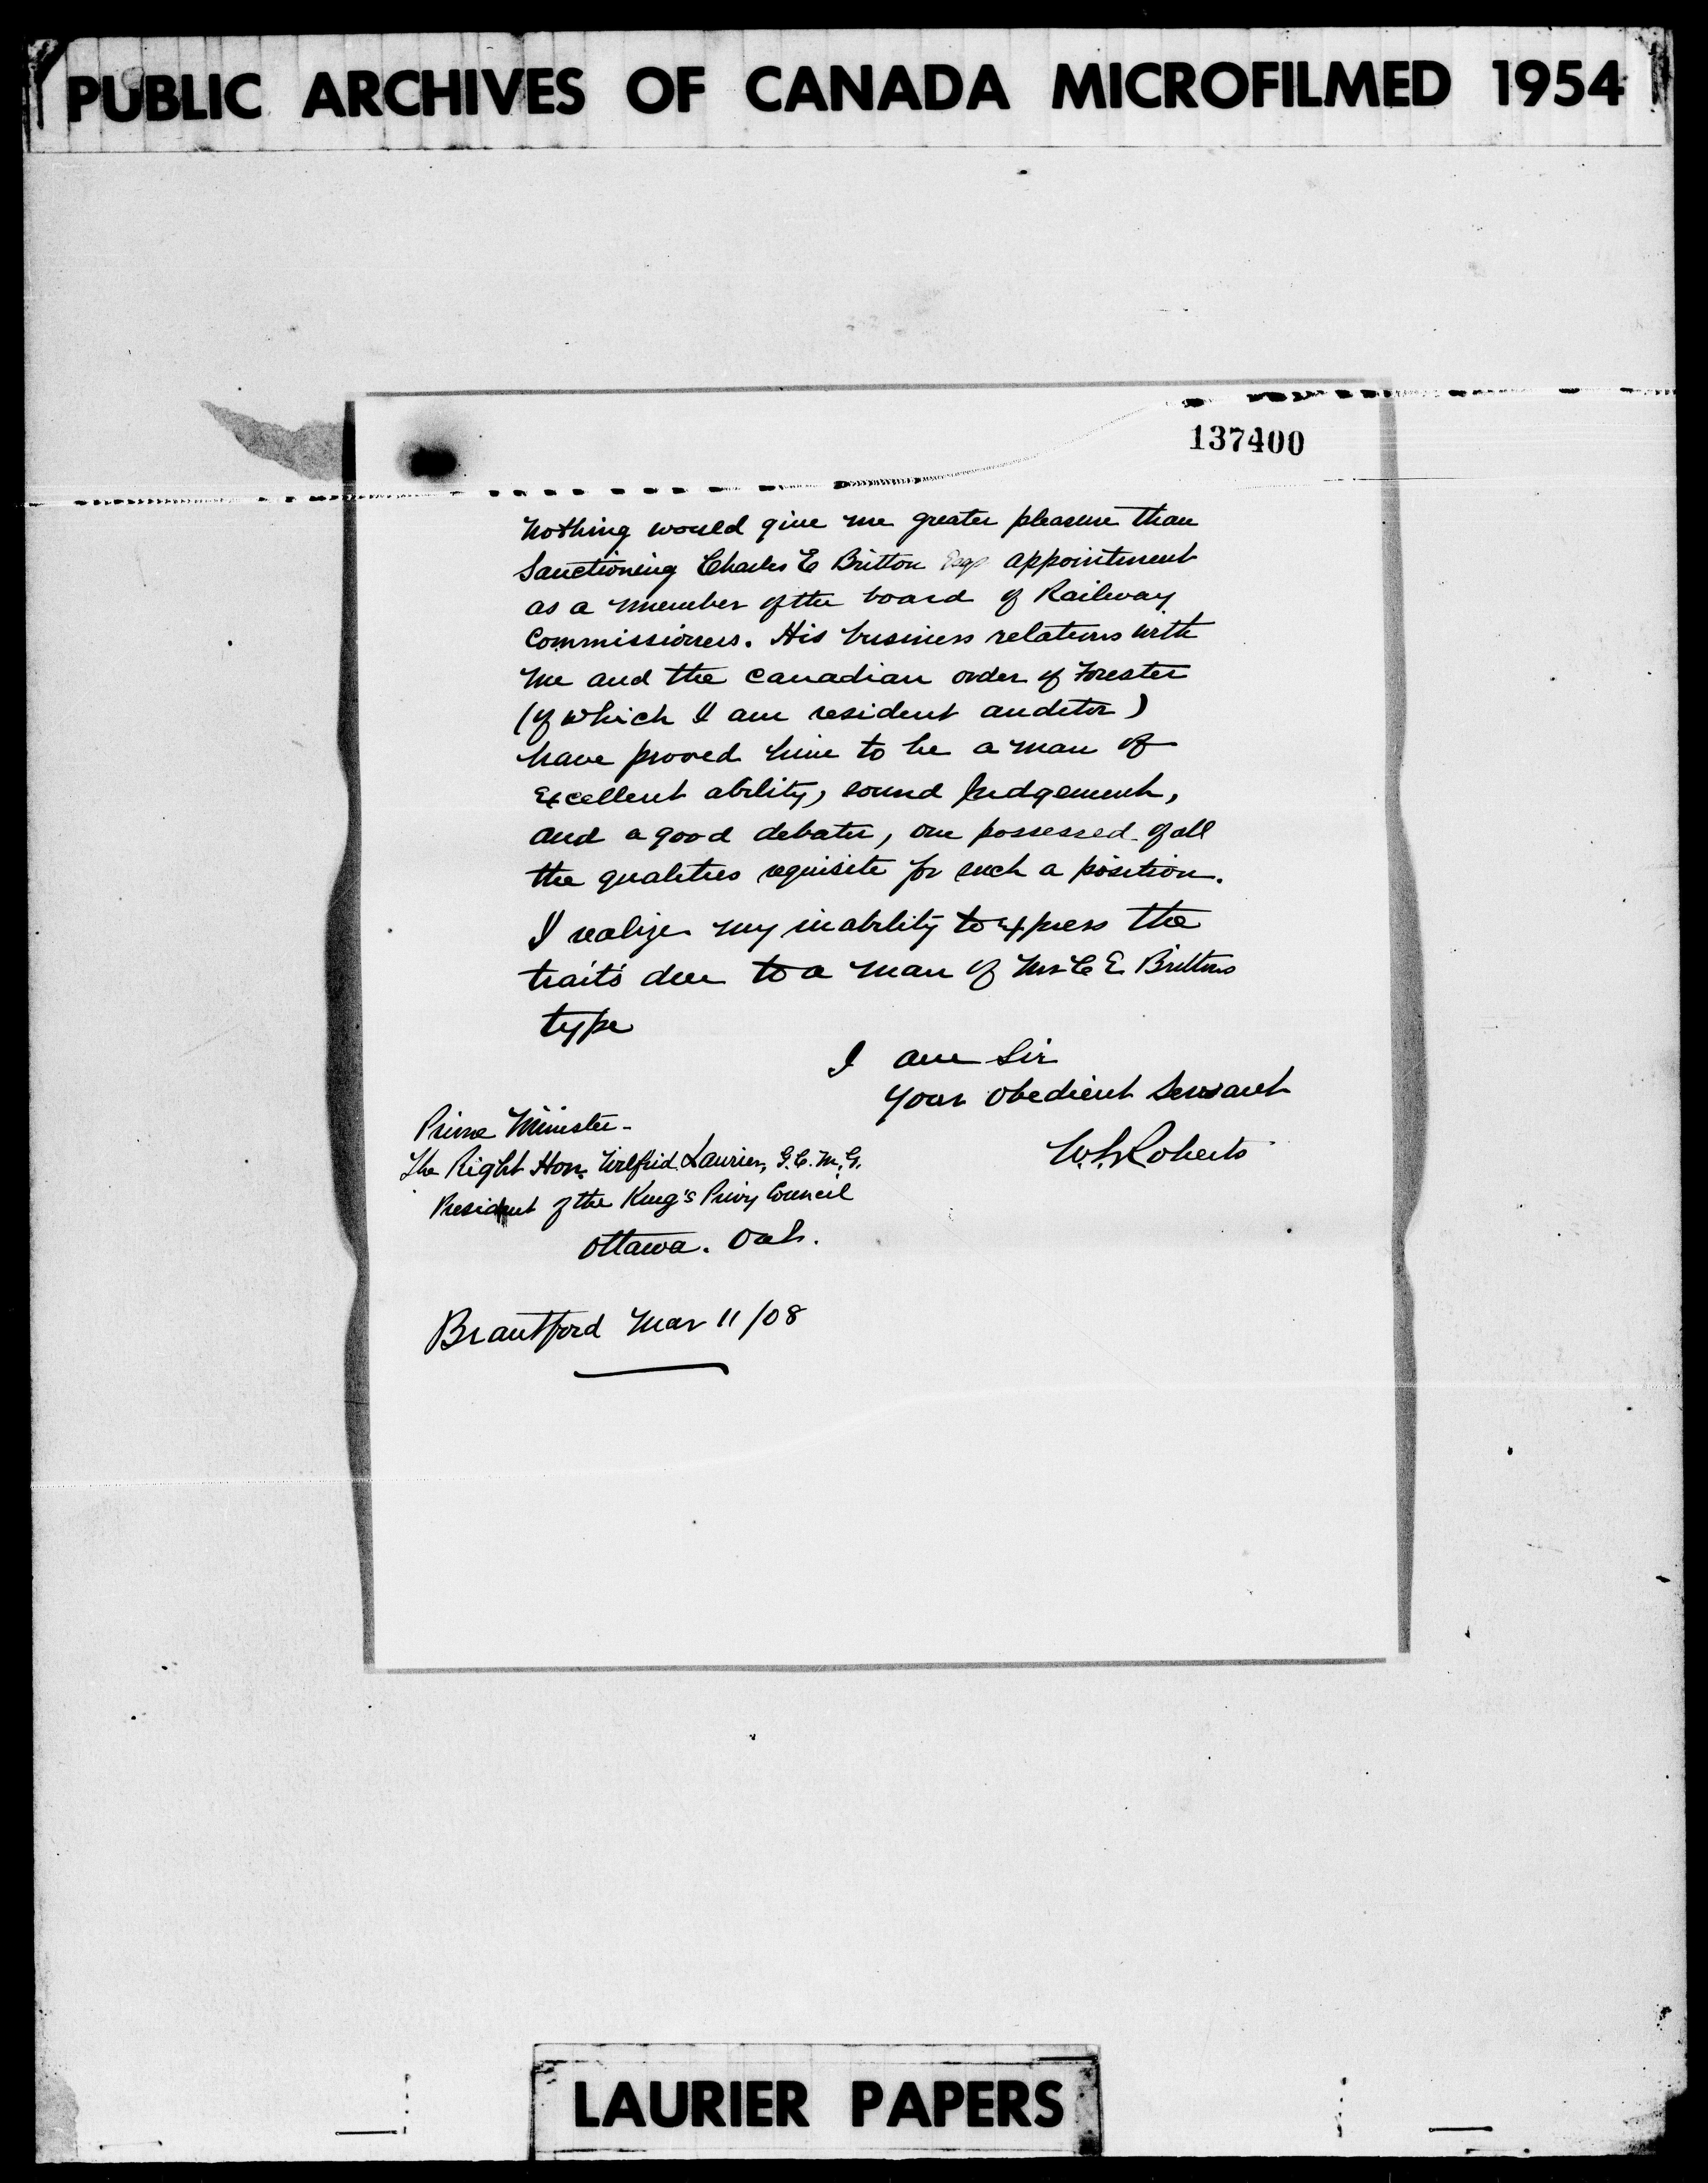 PUBLIC ARCHIVES OF CANADA MICROFILMED 1954
137400
Nothing would give me greater pleasure than
Sanctioning Charles E Britton Esqs appointment
as a member of the board of Railway
Commissioners. His business relations with
me and the Canadian order of Forester
(of which I am resident auditor)
have proved him to be a man of
Excellent ability, sound Judgement,
and a good debater, one possessed of all
the qualities requisite for such a position.
I realize my inability to express the
traits due to a man of Mr C E Brittons
type
I am Sir
Your Obedient Servant
W. L. Roberts
Prime Minister-
The Right Hon. Wilfrid Laurier, G.C.M.G.
President of the King's Privy Council
Ottawa. Ont.
Brantford Mar 11/08
LAURIER PAPERS